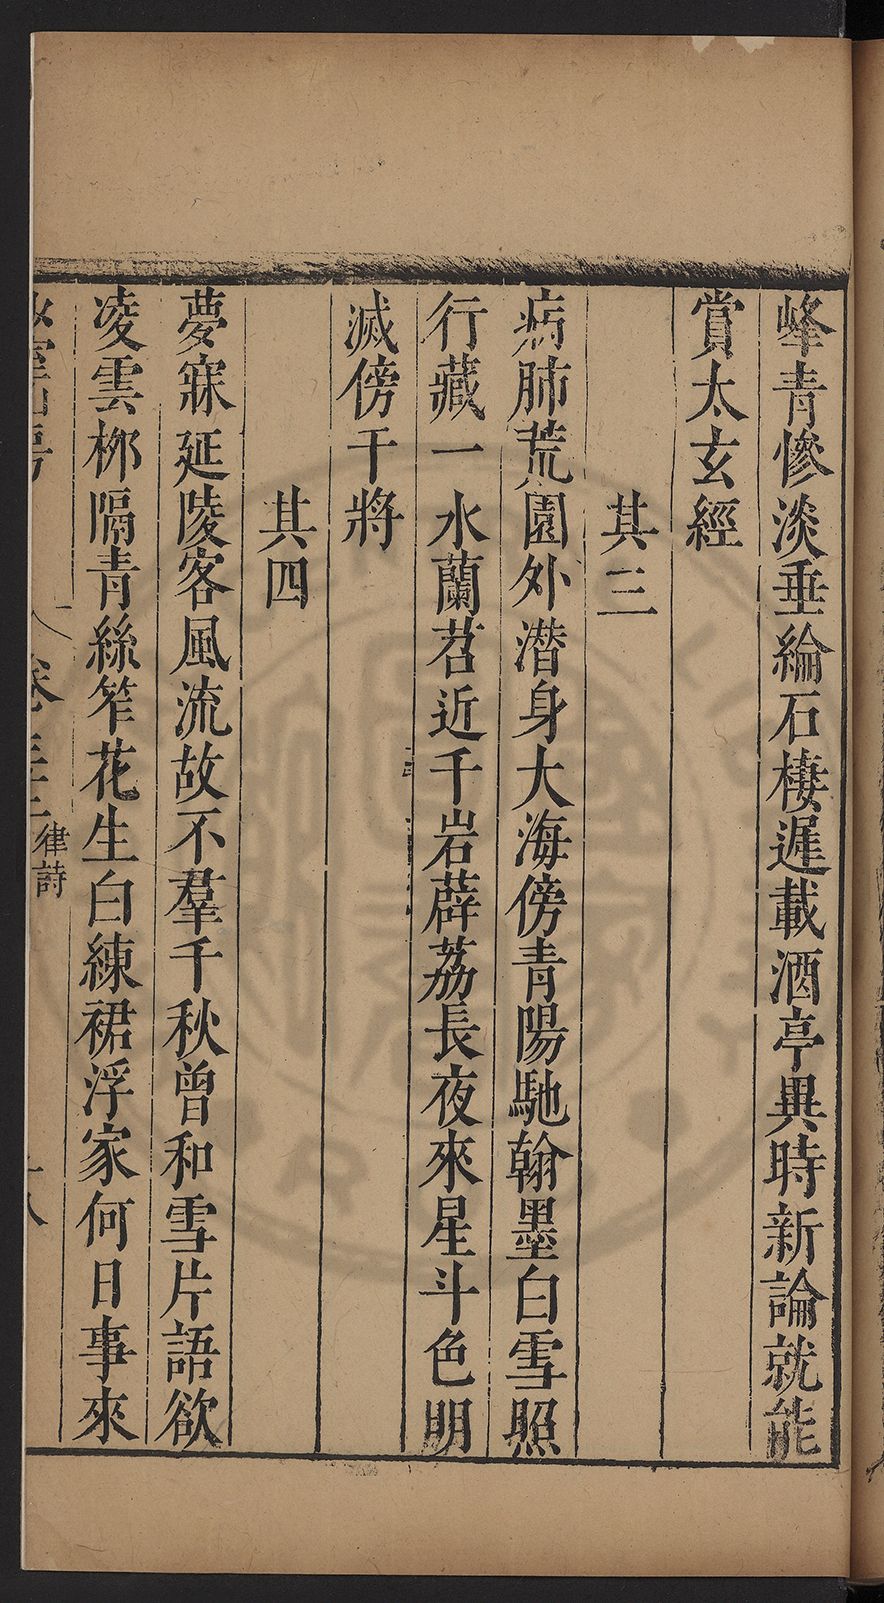 峰青慘淡垂綸石棲遲載酒亭異時新論就能
賞太玄經
其三
病肺荒園外潛身大海傍青陽馳翰墨白雪照
行藏一水蘭苕近千岩薜荔長夜來星斗色明
滅傍干將
其四
夢寐延陵客風流故不羣千秋曾和雪片語欲
凌雲栁隔青絲笮花生白練裙浮家何日事來
卷三十二
律詩
十八